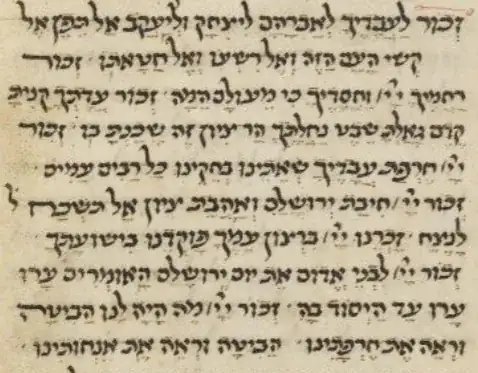 זכור לעבדיך לאברהם ליצחק וליעקב אל תפן אל
קשי העם הזה ואל רשעו ואל חטאתו · זכור
רחמיך יי/ וחסדיך כי מעולם המה · זכור עדתך קנית
קדם גאלת שבט נחלתך הר ציון זה שכנת בו · זכור
יי/ חרפת עבדיך שאתינו בחקינו כל רבים עמים ·
זכור יי/ חיבת ירושלם ואהבת ציון אל תשכח ל
לנצח · זכרנו יי/ ברצון עמך פוקדנו בישועתך ·
זכור יי/ לבני אדום את יום ירושלם האומרים ערו
ערו עד היסוד בה · זכור יי/ מה היה לנו הביטה
וראה את חרפתינו · הביטה וראה את אנחותינו ·